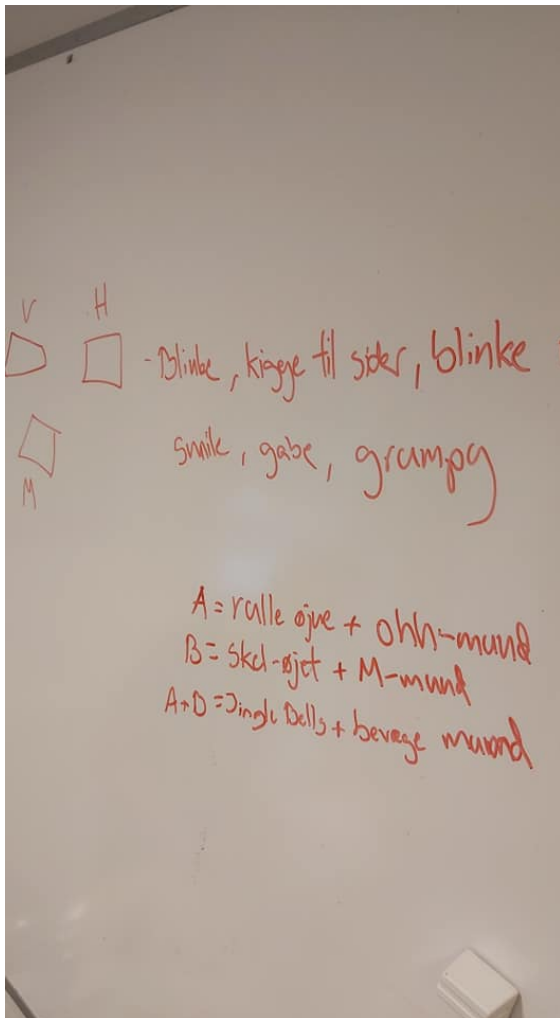 V H
- Blinke, kigge til sider, blinke
M
smile, gabe, grumpy
A = rulle øjne + ohh-mund
B = skel-øjet + M-mund
A+B = Jingle Bells + bevæge mund